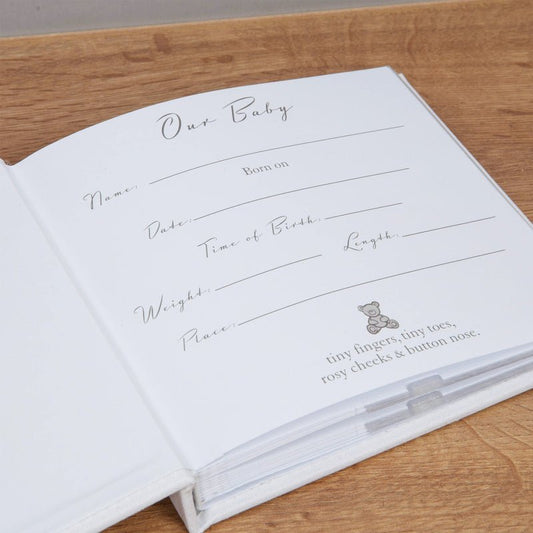 Our Baby
Name:
Born on
Date:
Time of Birth:
Weight: Length:
Place:
tiny fingers, tiny toes,
rosy cheeks & button nose.